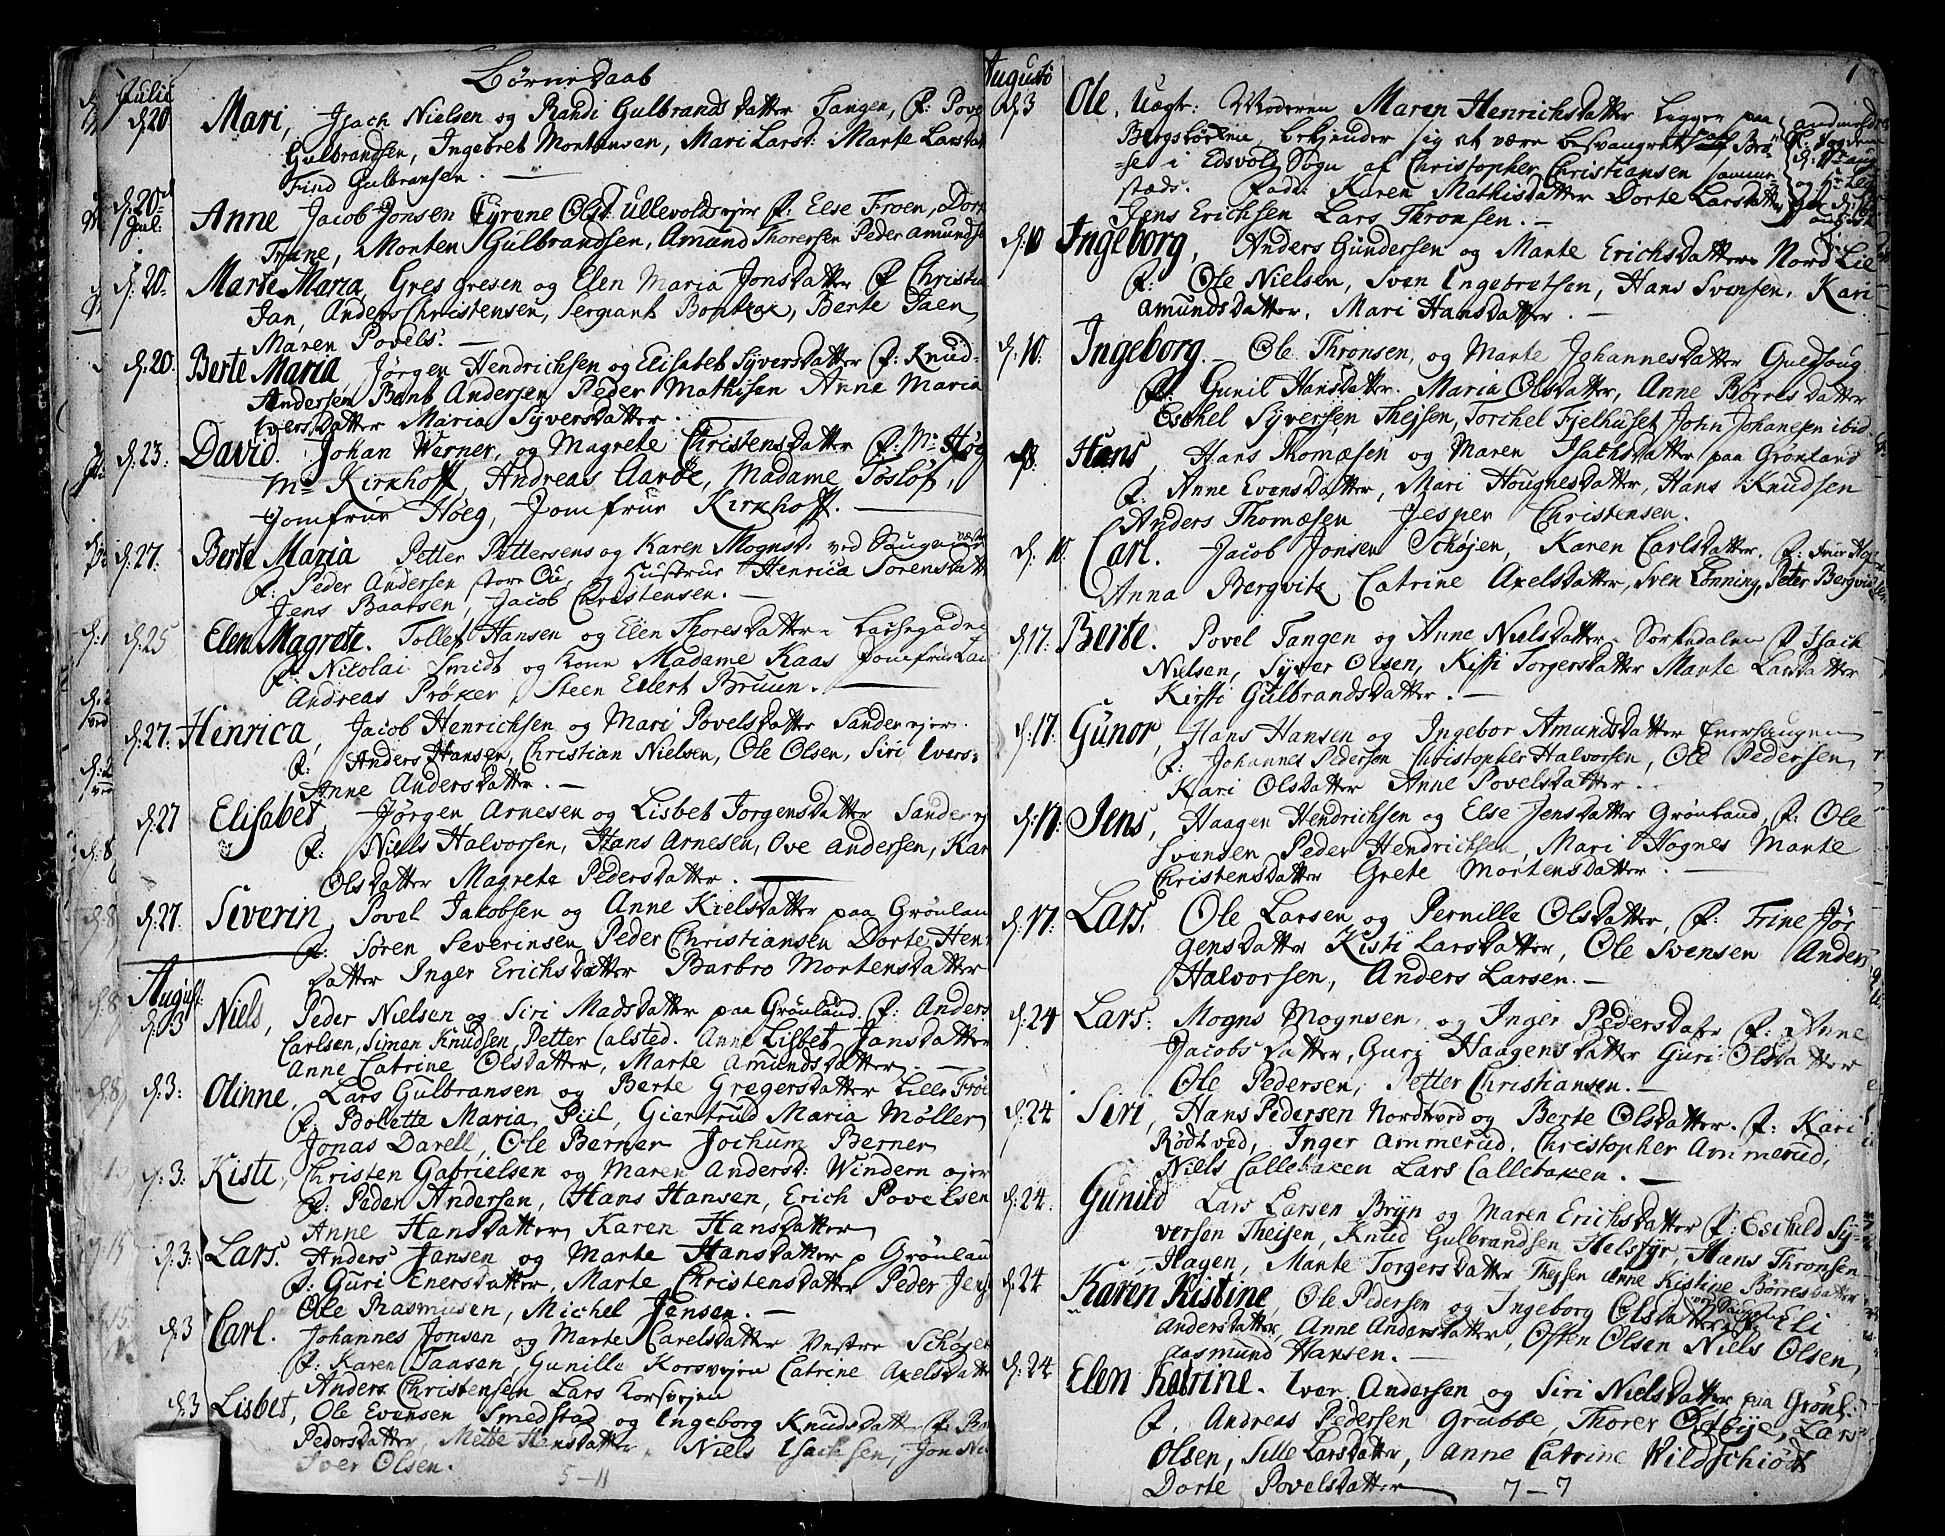 Børne Daab
Julii
d. 20 Mari, Isach Nielsen og Randi Gulbrands datter Tangen, F: Pove
Gulbrandsen, Ingebret Mortensen, Mari Larsd: Marte Larsdat
Find Gulbransen.
d. 20 Anne Jacob Jonsen Cyrene Olsd: Ullevoldsejer F: Else Froen, Dort
Trane, Morten Gulbrandsen, Amund Thorersen Peder Amunds
d: 20. Marte Maria, Gres gresen og Elen Maria Jonsdatter F Christia
Jan, Anders Christensen, Sergiant Bontkax, Berte Taen,
Maren Povels:
d: 20: Berte Maria, Jørgen Hendrichsen og Elisabet Syversdatter F: Knud
Andersen Bent Andersen Peder Mathisen Anne Maria
Ivers Datter Maria Syversdatter.
d: 23: David. Johan Werner, og Magrete Christensdatter F: Mr Høeg
Mr Kirkhoff, Andreas Aarøe, Madame Søsløf,
Jomfrue Høeg, Jomfrue Kirkhoff.
d: 27. Berte Maria Petter Pettersens og Karen Mognsd: ved Saugene
F: Peder Andersen store Ou, og Hustrue Henrica Sørensdatt
Jens Baatsen, Jacob Christensen.
d: 25 Elen Magrete. Tollef Hansen og Elen Thoresdatter Lassegadn
F: Nicolai Smidt og kone Madame Kaas Jomfrue Lau
Andreas Prøker Steen Eilert Bruun.
d: 27. Henrica, Jacob Henrichsen og Mari Povelsdatter Sanderejer.
F: Anders Hansen, Christian Nielsen, Ole Olsen, Siri Ivers:
Anne Andersdatter.
d: 27 Elisabet, Jørgen Arnesen og Lisbet Jorgensdatter Sandere
F: Niels Halvorsen, Hans Arnesen, Ove Andersen, Kar
Olsdatter Magrete Pedersdatter.
d: 27. Severin, Povel Jacobsen og Anne Kielsdatter paa Grønlan
F: Søren Severinsen Peder Christiansen Dorte Hen
datter Inger Erichsdatter Barbro Mortensdatter
August:
d: 3 Niels, Peder Nielsen og Siri Madsdatter paa Grønland. F: Anders
Carlsen, Simen Knudsen, Petter Calsted. Anne Lisbet Jansdatter
Anne Catrine Olsdatter, Marte Amundsdatter.
d: 3: Olinne, Lars Gulbransen og Berte Gregersdatter Lille Frøe
F: Bolette Maria Piil, Giertrud Maria Møller
Jonas Darell, Ole Berner Jochum Berner
d: 3: Kiste, Christen Gabrielsen og Maren Andersd: Windern ejer
F: Peder Andersen, Hans Hansen, Erich Povelsen
Anne Hansdatter, Karen Hansdatter
d: 3: Lars. Anders Jansen og Marte Hansdatter p Grønlan
F: Guri Enersdatter, Marte Christensdatter Peder Jens
Ole Rasmusen, Michel Jensen.
d: 3 Carl. Johannes Jonsen og Marte Carelsdatter Vestre Schøjen
F: Karen Taasen, Gunille Korsvejen Catrine Axelsdatt
Anders Christensen Lars Korsvejen
d: 3 Lisbet, Ole Evensen Smedstad og Ingeborg Knudsdatter F: Ber
Pedersdatter, Mette Hensdatter. Niels Isachsen, Jon Nie
Iver Olsen.
5-11
Augusti
1
d: 3 Ole, Uægt: Moderen Maren Henrichsdatter ligger paa
Bergstøcken bekiender sig at være besvangret af
i Edsvolds Sogn af Christopher Christiansen samme
stæds. Fadd: Karen Mathisdatter Dorte Larsdatter
Jens Erichsen Lars Thronsen.
d: 10 Ingeborg, Anders Gundersen og Marte Erichsdatter Nord Lie
F: Ole Nielsen, Sven Ingebretsen, Hans Svensen, Kari
Amundsdatter, Mari Hansdatter.
d: 10: Ingeborg. Ole Thronsen, og Marte Johannesdatter Guldsoug
F: Gunil Hansdatter. Maria Olsdatter, Anne Børresdatter
Eschel Syversen Thejsen, Torchel Fjelhuset John Johansen ibid.
Hans, Hans Thomæsen og Maren Isachsdatter paa Grønland
F: Anne Evensdatter, Mari Hougnesdatter, Hans Knudsen
Anders Thomæsen Jesper Christensen.
d: 10. Carl. Jacob Jonsen Schøjen, Karen Carlsdatter. F:
Anna Bergvitz Catrine Axelsdatter, Sven Lønning, Peter Bergvi
d: 17: Berte. Povel Tangen og Anne Nielsdatter Sørkedalen F: Isach
Nielsen, Syver Olsen, Kisti Torgersdatter Marte Larsdatter
Kirsti Gulbrandsdatter.
d: 17. Gunor Hans Hansen og Ingebor Amundsdatter Enerhaugen
F: Johannes Pedersen Christopher Halvorsen, Ole Pedersen,
Kari Olsdatter Anne Povelsdatter.
d: 17: Jens, Haagen Hendrichsen og Else Jensdatter Grønland, F: Ole
Svensen Peder Hendrichsen, Mari Hognes Marte
Christensdatter Grete Mortensdatter.
d: 17. Lars. Ole Larsen og Pernille Olsdatter, F: Trine Jør
gensdatter Kisti Larsdatter, Ole Svensen Anders
Halvorsen, Anders Larsen.
d: 24 Lars: Mogns Mognsen, og Inger Pedersdatr F: Anne
Jacobsdatter, Guri Haagensdatter Guri Olsdatter
Ole Pedersen, Petter Christiansen.
d: 24 Siri, Hans Pedersen Nordtved og Berte Olsdatter. F: Kari
Rødtved, Inger Ammerud, Christopher Ammerud,
Niels Callebaken Lars Callebaken.
d: 24. Gunild Lars Larsen Bryn og Maren Erichsdatter F: Eschild Sy-
versen Theisen, Knud Gulbrandsen Helsfyr, Hans Thronsen
Hagen, Marte Torgersdatter Thejsen Anne Kistine Børresdatter
d: 24 Karen Kistine, Ole Pedersen og Ingeborg Olsdatter F: Eli
Andersdatter, Anne Andersdatter, Osten Olsen Niels Olsen,
Aasmund Hansen.
d: 24 Elen Katrine. Iver Andersen og Siri Nielsdatter paa Grønl:
F. Andreas Pedersen Grubbe, Thorer Østbye, Lars
Olsen, Sille Larsdatter, Anne Catrine Wildschiødt
Dorte Povelsdatter
7-7